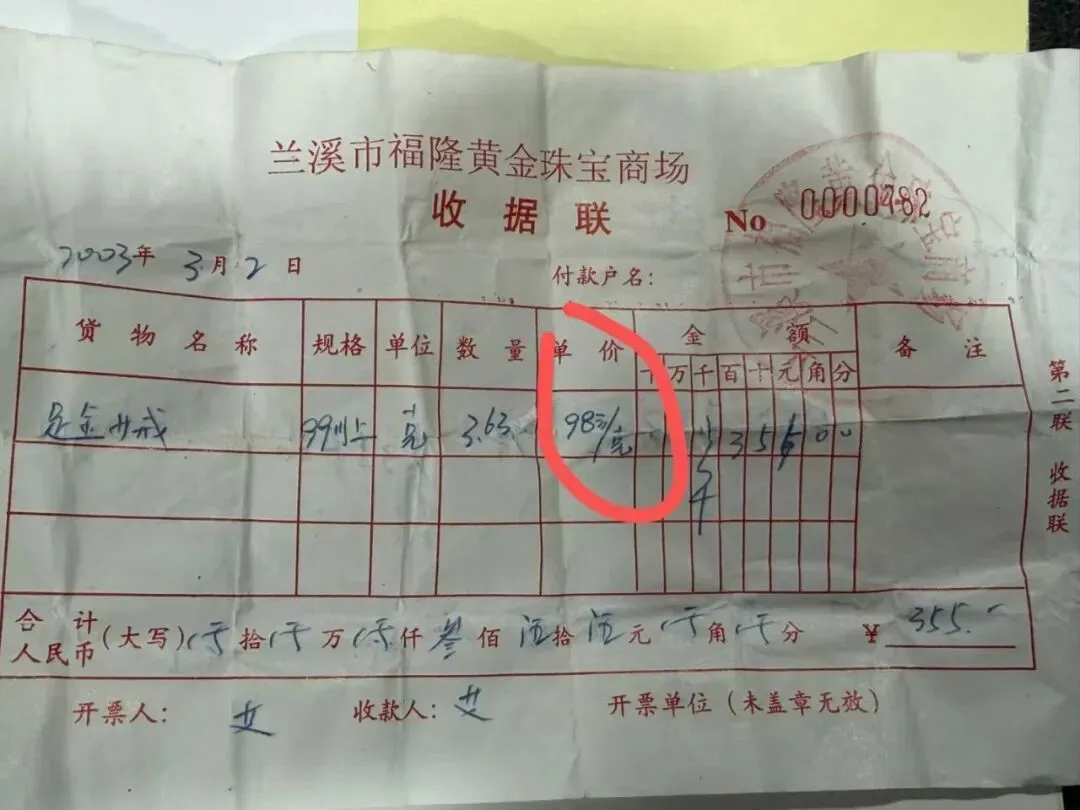 兰溪市福隆黄金珠宝商场
收据联
No 0000782
2003年 3月2日
付款户名:
货物名称 规格 单位 数量 单价 金额 备注
十万千百十元角分
足金 戒 克 3.63 98元/克 3 5
合计人民币(大写) 拾 万 仟 叁佰 伍拾 伍元 角 分 ¥ 355.
开票人: 收款人: 开票单位(未盖章无效)
第二联 收据联